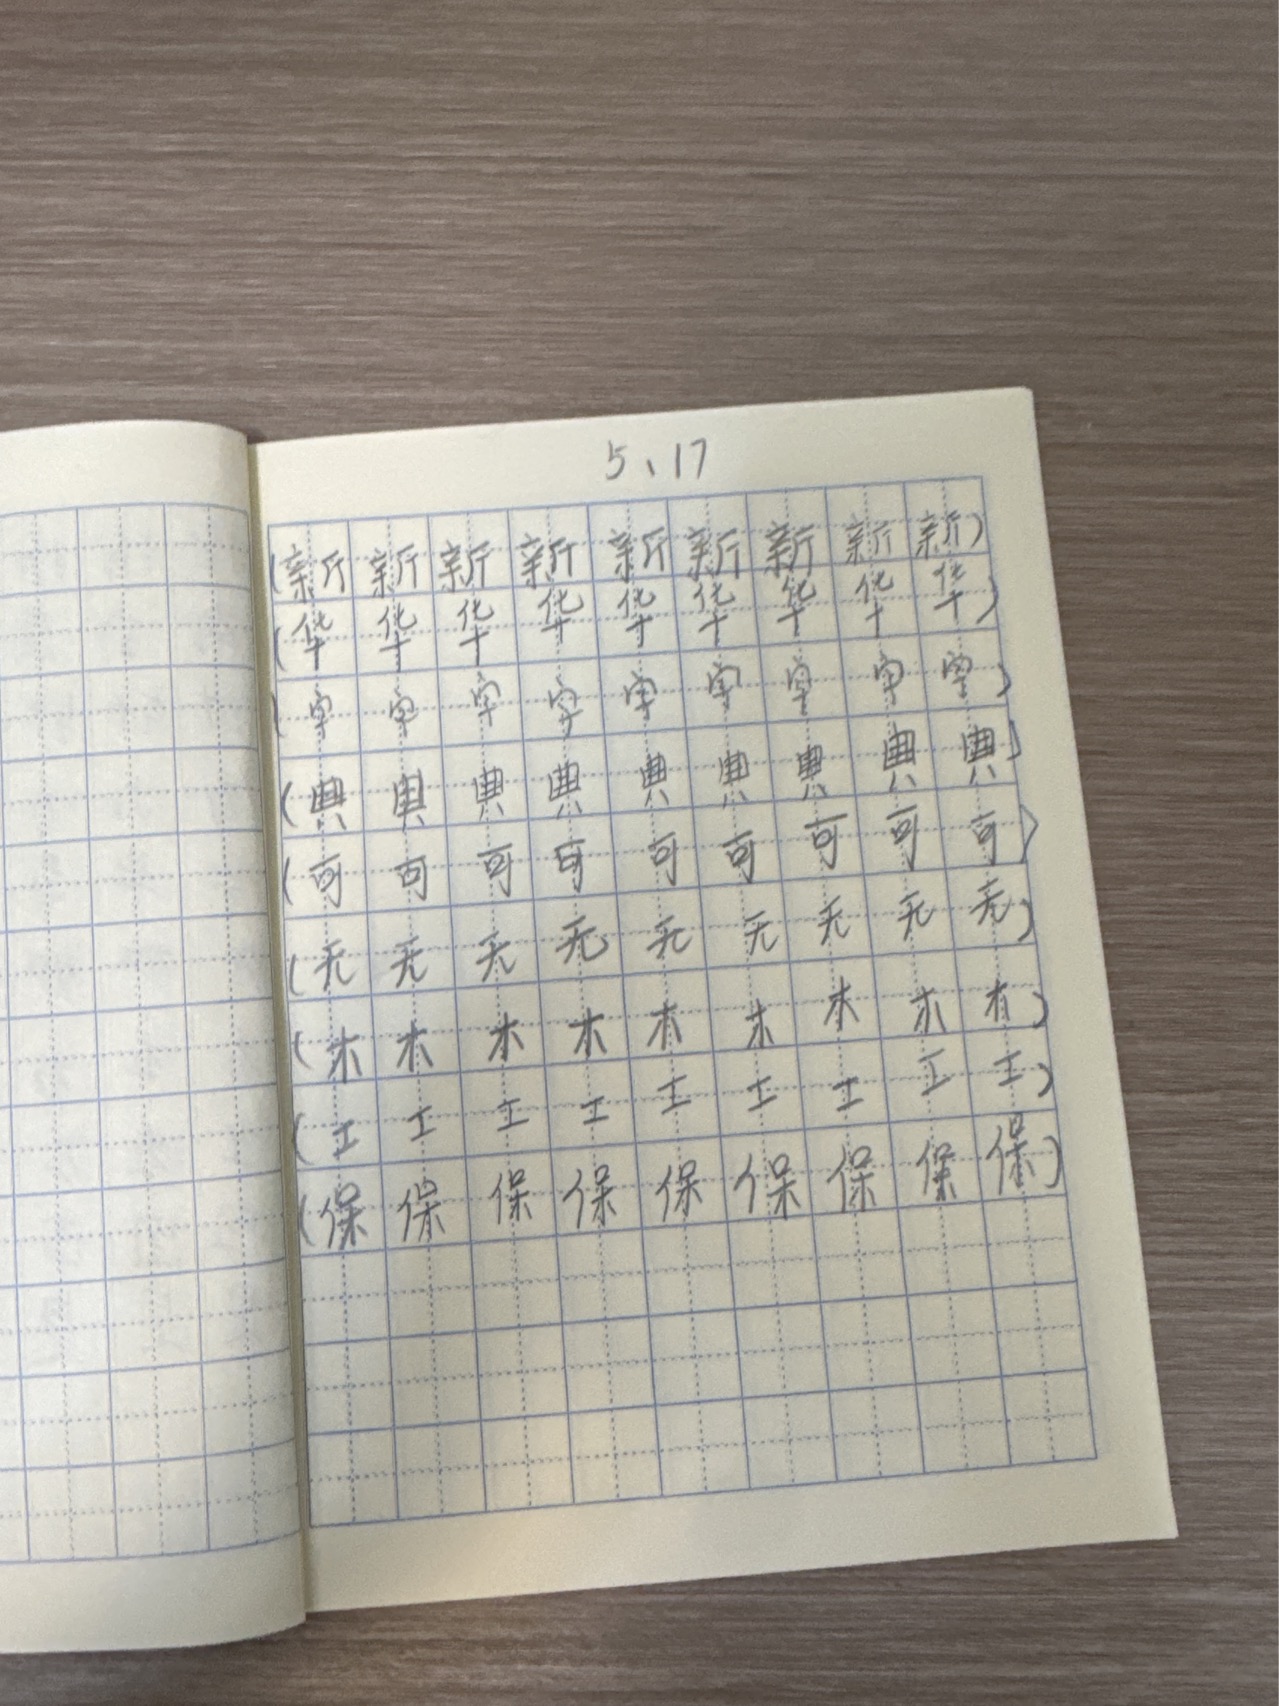 5、17
(新新新新新新新新新)
(华华华华华华华华华)
(字字字字字字字字字)
(典典典典典典典典典)
(可可可可可可可可可)
(无无无无无无无无无)
(木木木木木木木木木)
(工工工工工工工工工)
(保保保保保保保保保)